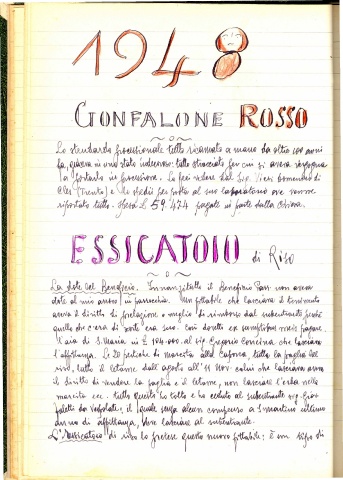 1948
GONFALONE ROSSO
Lo stendardo processionale tutto ricamato a mano da oltre 100 anni
fa, giaceva in uno stato indecoroso: tutto stracciato per cui si aveva vergogna
a portarlo in processione. Lo feci vedere dal Sig. Vieri Domenico di
Cles (Trento) e lo spedii per posta al suo laboratorio ove venne
riportato tutto. Spesa £ 59.474 pagate in parte dalla Chiesa.
ESSICATOIO di Riso
La dote del Beneficio. Innanzitutto il Beneficio Parr. non aveva
dote al mio arrivo in parrocchia. Un fittabile che lasciava il
aveva il diritto di prelazione o meglio di rimborso dal subentrante perché
quello che c'era di sorte era suo. Così dovetti ex pagare
l'aia di S. Maria in £ 124.000 al sig. Gregorio Concina che lasciava
l'affittanza. Le 20 pertiche di marcita alla tutta la paglia del
riso, tutto il letame dall'agosto all'11 Nov. colui che lasciava aveva
il diritto di vendere la paglia e il letame, non lasciare l'erba nella
marcita ecc. tutto questo ho tolto e ho ceduto al subentrante sig. Gio.
da Vespolate, il quale senza alcun compenso a S. Martino ultimo
anno di affittanza, deve lasciare al subentrante.
L'Essicatoio di riso lo pretese questo nuovo fittabile: È un tipo di